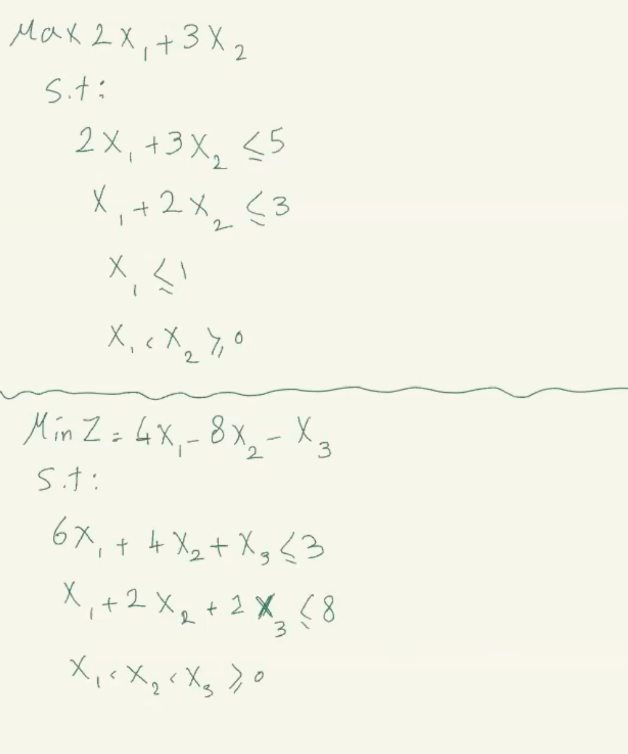 Max 2x₁ + 3x₂
s.t:
2x₁ + 3x₂ ≤ 5
x₁ + 2x₂ ≤ 3
x₁ ≤ 1
x₁، x₂ ≥ 0
Min Z = 4x₁ - 8x₂ - x₃
s.t:
6x₁ + 4x₂ + x₃ ≤ 3
x₁ + 2x₂ + 2x₃ ≤ 8
x₁، x₂، x₃ ≥ 0